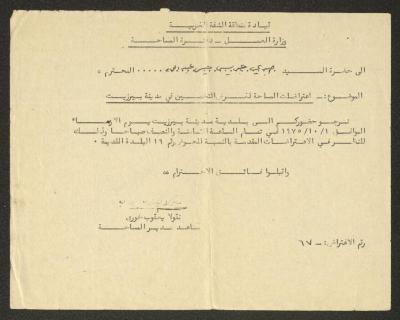 قيادة منطقة الضفة الغربية
وزارة العدل - دائرة المساحة
الى حضرة السيد ..... المحترم ،
الموضوع :- اعتراضات المساحة لغرض التخمين في مدينة بيرزيت
نرجو حضوركم الى بلدية مدينة بيرزيت يوم الاربعاء
الموافق ١٩٧٥/١٠/١ في تمام الساعة الثامنة والنصف صباحا وذلك
للنظر في الاعتراضات المقدمة بالنسبة للحوض رقم ١٩ البلدة القديمة ٠
واقبلوا فائق الاحترام ،،
نقولا يعقوب خوري
مساعد مدير المساحة
رقم الاعتراض :- ٦٧